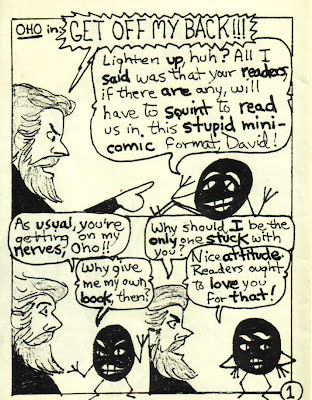 OHO in: GET OFF MY BACK!!!
Lighten up, huh? All I
said was that your readers,
if there are any, will
have to squint to read
us in, this stupid mini-
comic format, David!
As usual, you're
getting on my
nerves, Oho!!
Why give
me my own
book, then?
Why should I be the
only one stuck with
you?
Nice attitude.
Readers ought
to love you
for that!
1